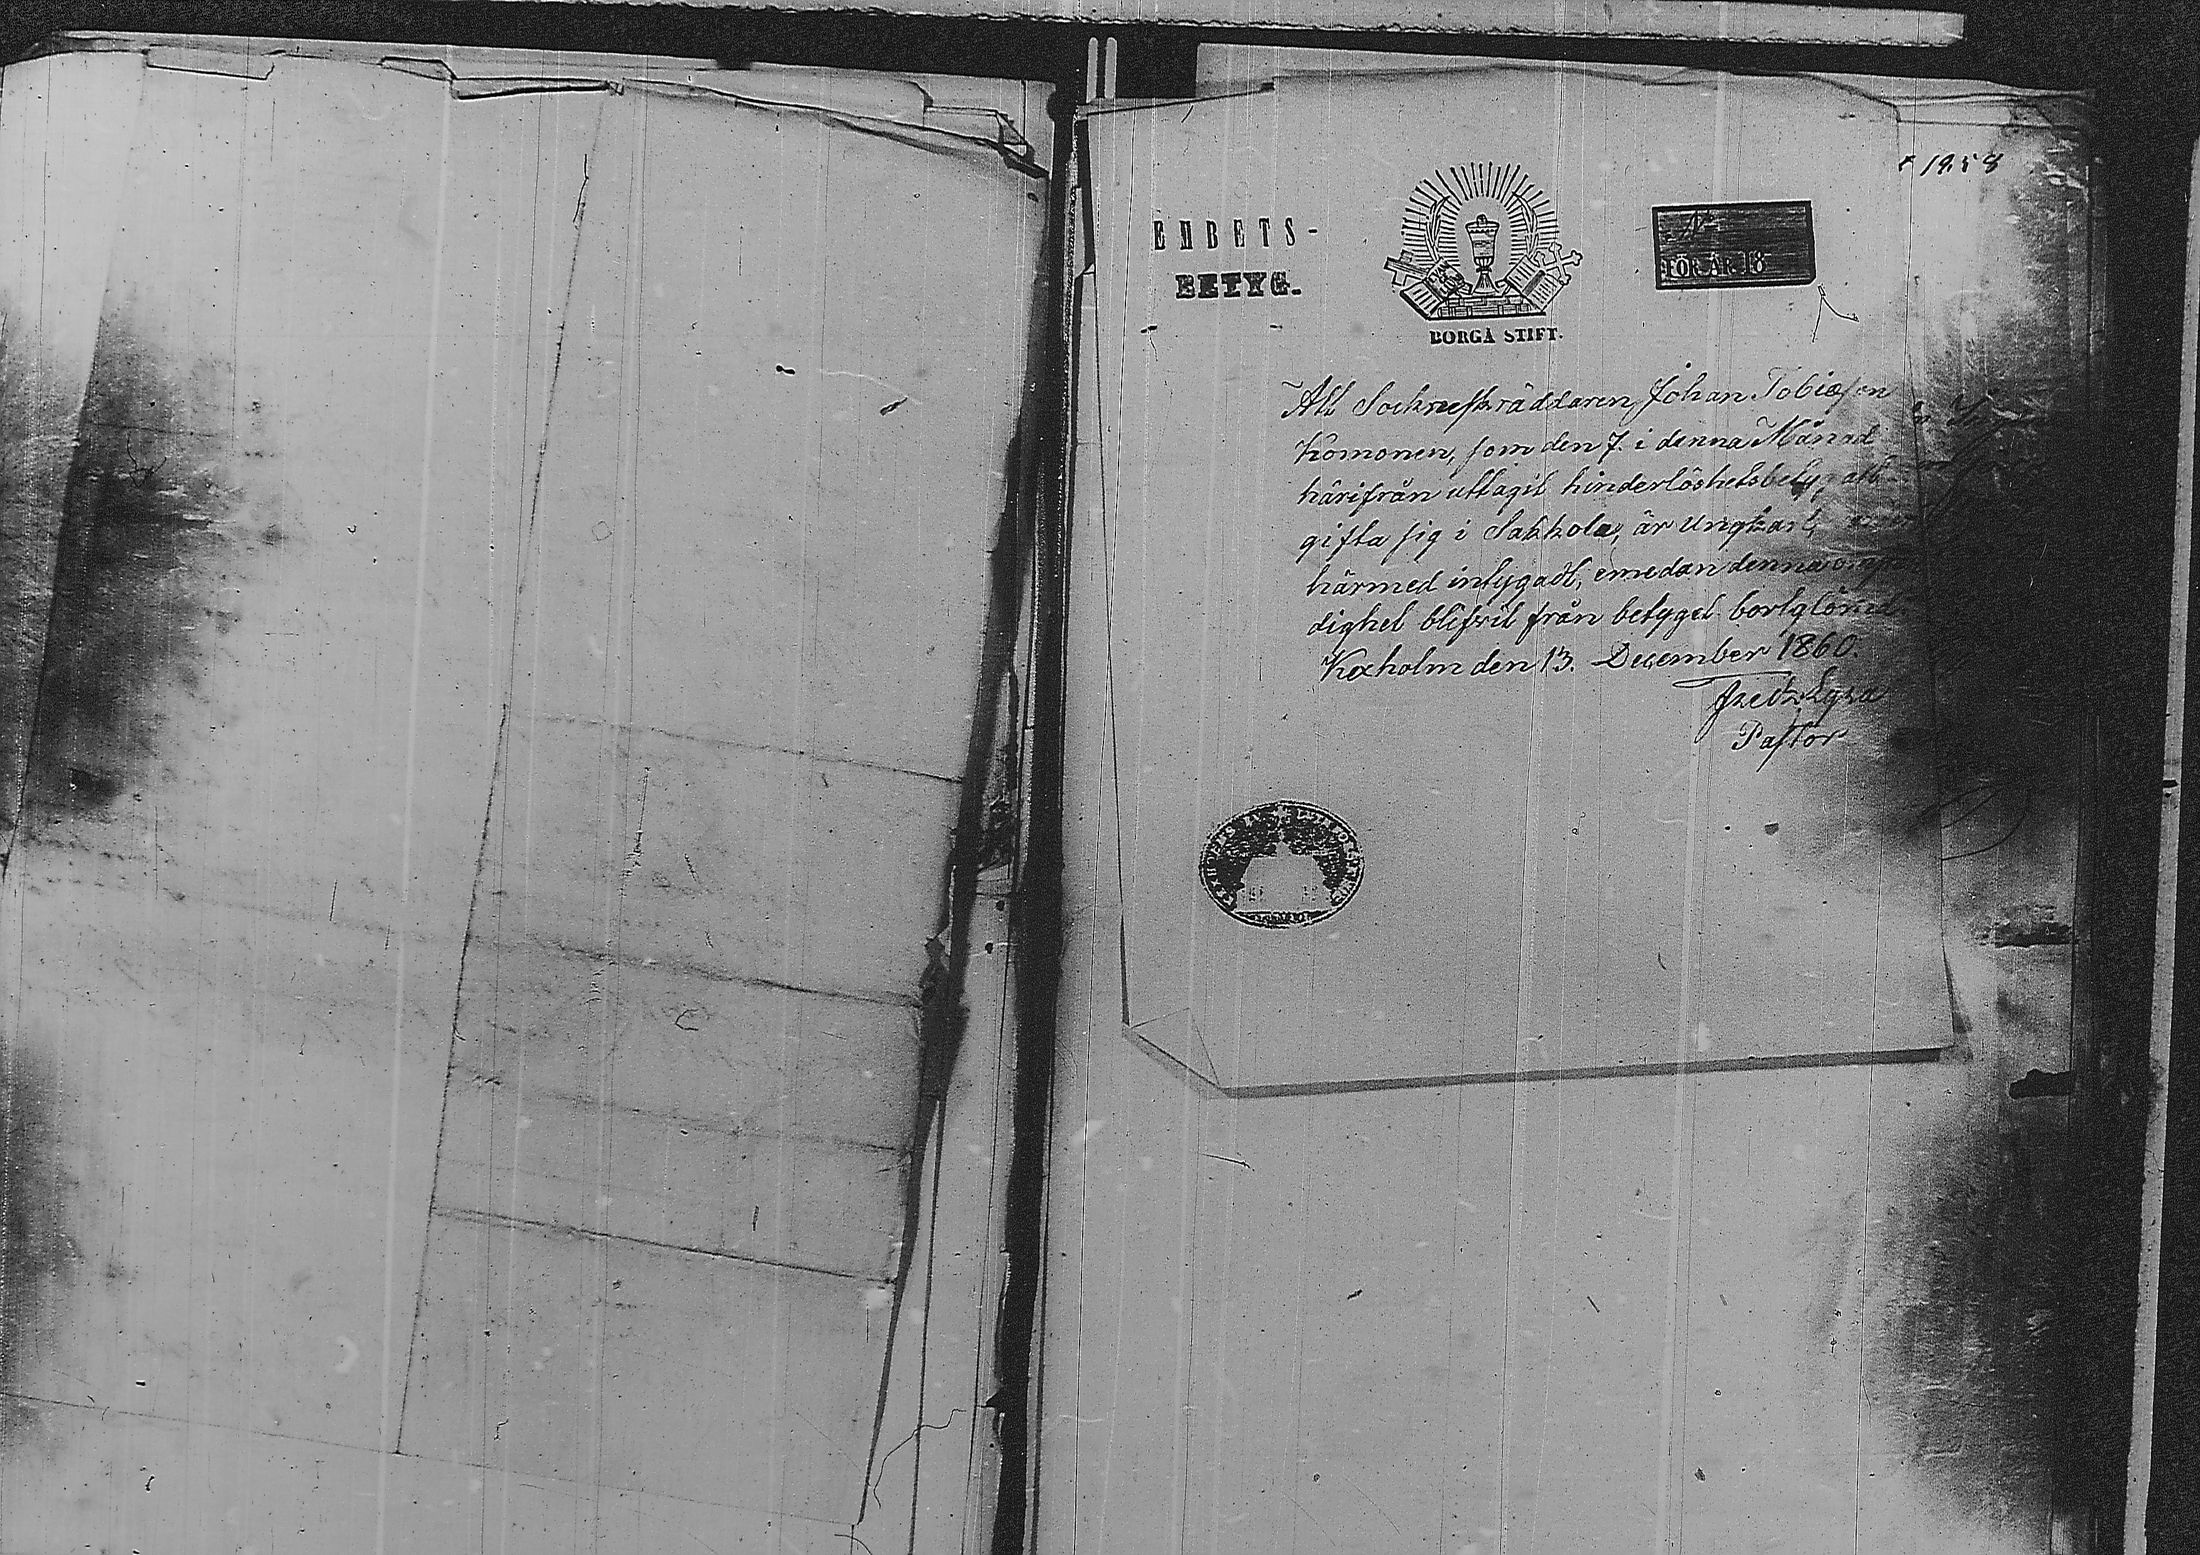 1958
EMBETS-
BETYG.
N
FÖR ÅR 18
BORGÅ STIFT.
Att Sockneskräddaren Johan Tobiasson
Komonen, som den 7. i denna Månad
härifrån uttagit hinderlöshetsbetyg att
gifta sig i Sakkola, är Ungkarl,
härmed intygadt, emedan denna
dighet blifvit från betyget bortglömd
Kexholm den 13. December 1860.
Pastor